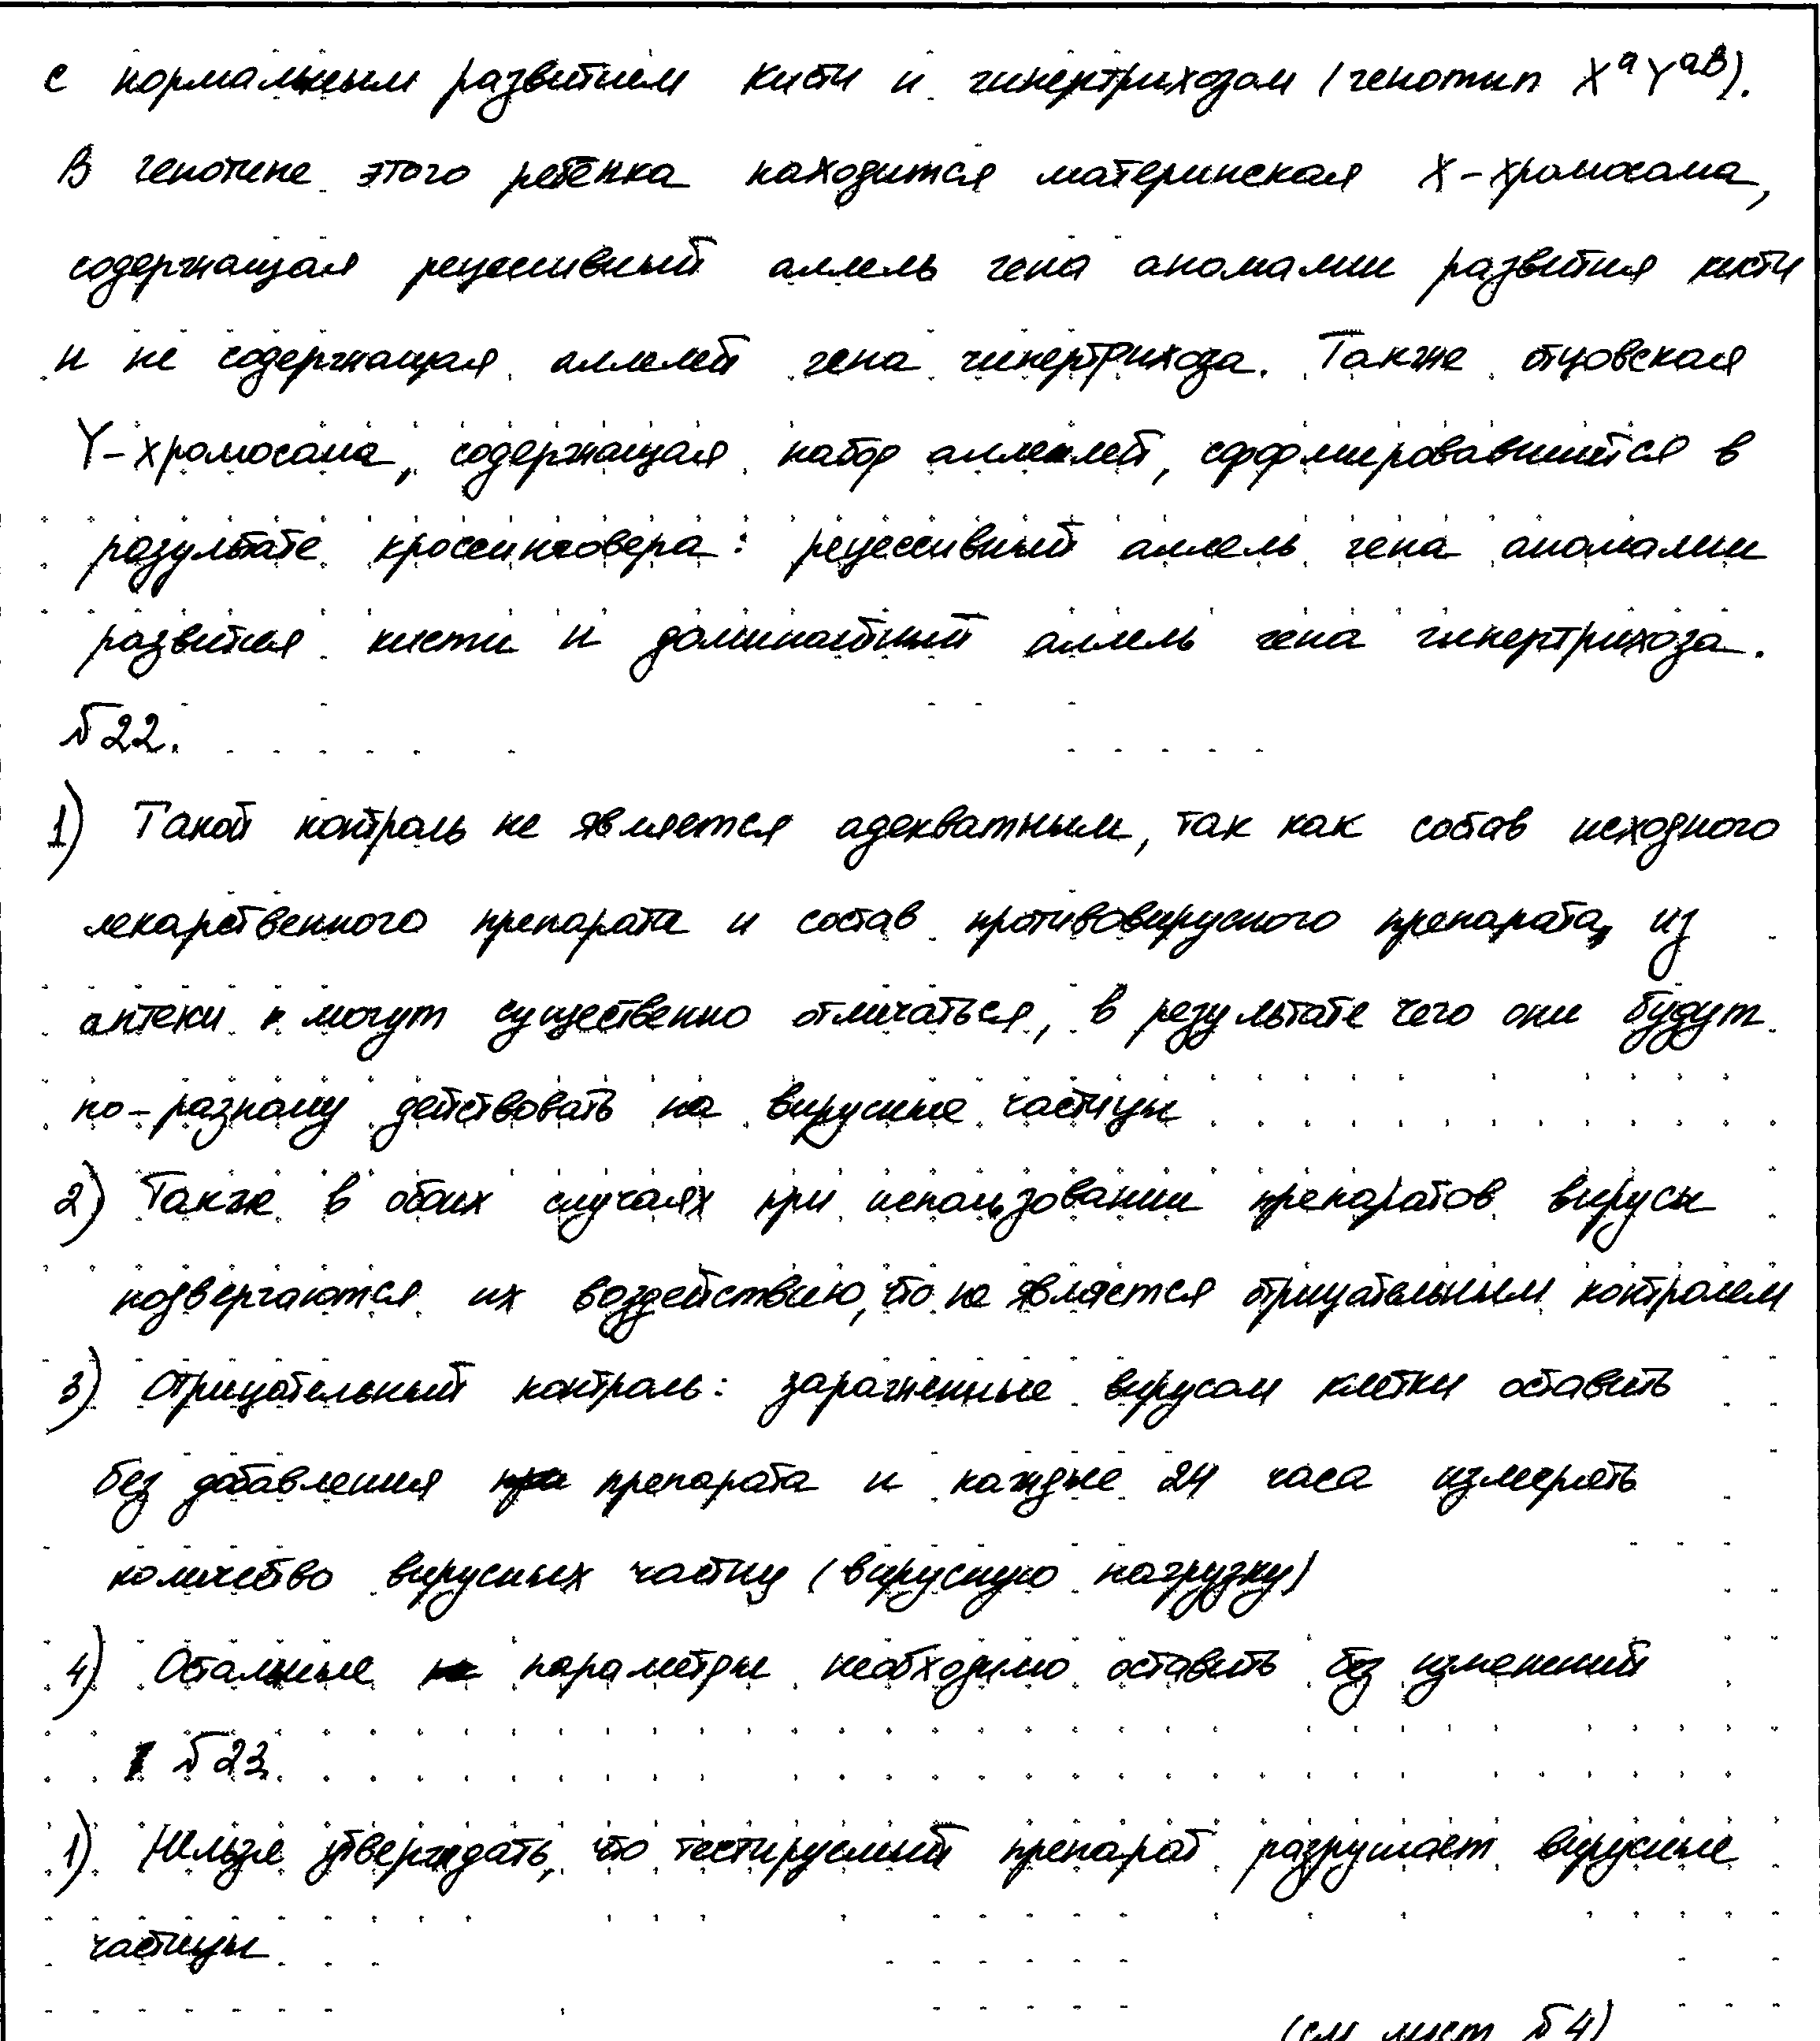 с нормальным развитием кисти и гипертрихозом (генотип XᵃYᵃᴮ).
В генотипе этого ребёнка находится материнская X-хромосома,
содержащая рецессивный аллель гена аномалии развития кисти
и не содержащая аллелей гена гипертрихоза. Также отцовская
Y-хромосома, содержащая набор аллелей, сформировавшийся в
результате кроссинговера: рецессивный аллель гена аномалии
развития кисти и доминантный аллель гена гипертрихоза.
№22.
1) Такой контроль не является адекватным, так как состав исходного
лекарственного препарата и состав противовирусного препарата из
аптеки могут существенно отличаться, в результате чего они будут
по-разному действовать на вирусные частицы
2) Также в обоих случаях при использовании препаратов вирусы
подвергаются их воздействию, что не является отрицательным контролем
3) Отрицательный контроль: заражённые вирусом клетки оставить
без добавления препарата и каждые 24 часа измерять
количество вирусных частиц (вирусную нагрузку)
4) Остальные параметры необходимо оставить без изменений
№23.
1) Нельзя утверждать, что тестируемый препарат разрушает вирусные
частицы
(см. лист №4)